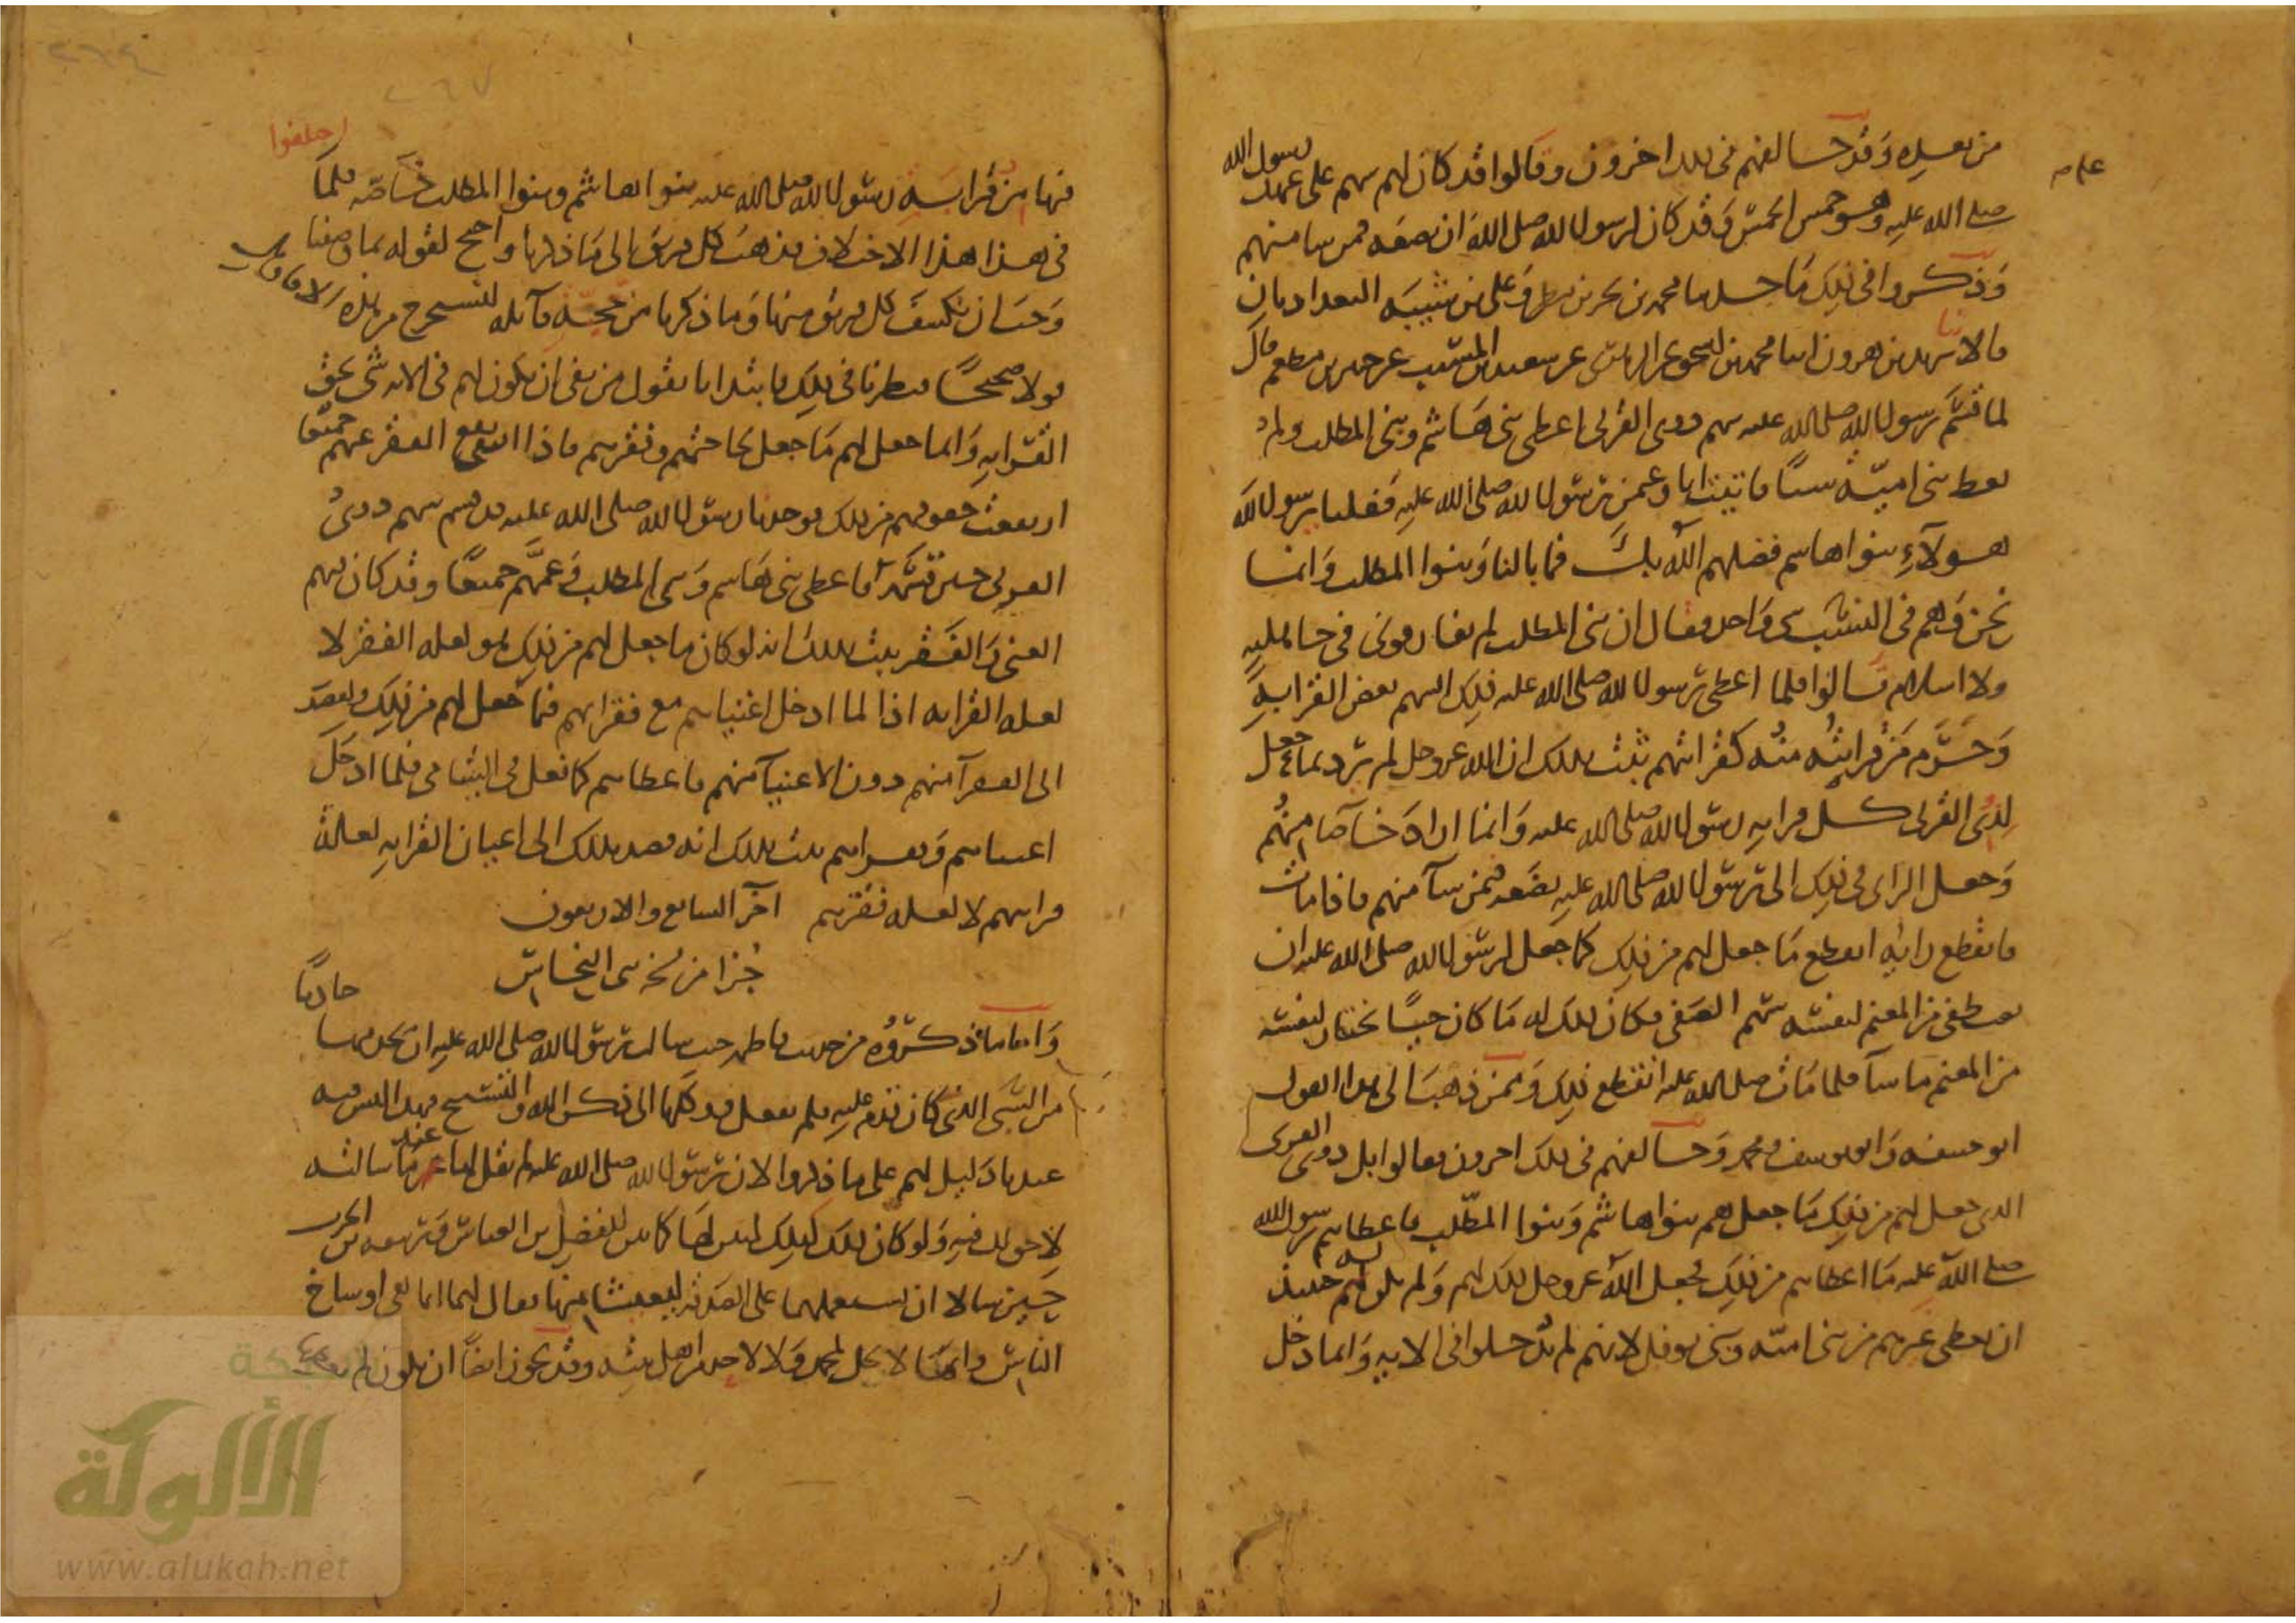 من بعده وقد خالفهم في ذلك اخرون وقالوا قد كان لهم سهم على عهد رسول الله
صلى الله عليه وهو خمس الخمس وقد كان لرسول الله صلى الله ان يضعه فمن شا منهم
وذكروا في ذلك ما حدثنا محمد بن بحر بن مطر وعلي بن شيبه البغداديان
قالا ثنا يزيد بن هرون انبا محمد بن اسحق عن الزهري عن سعيد بن المسيب عن جبير بن مطعم قال
لما قسم رسول الله صلى الله عليه سهم ذوي القربى اعطى بني هاشم وبني المطلب ولم
يعط بني امية شيئا فاتيت انا وعمن رسول الله صلى الله عليه فقلنا يا رسول الله
هولاء بنوا هاشم فضلهم الله بك فما بالنا وبنوا المطلب وانما
نحن وهم في النسب شي واحد فقال ان بني المطلب لم يفارقوني في جاهلية
ولا اسلام قالوا فلما اعطى رسول الله صلى الله عليه ذلك السهم بعض القرابة
وحرم من قرابته منه كقرابتهم ثبت بذلك ان الله عز وجل لم يرد بما جعل
لذي القربى كل قرابة رسول الله صلى الله عليه وانما اراد خاصا منهم
وجعل الراي في ذلك الى رسول الله صلى الله عليه يضعه فمن شا منهم فاذا مات
فانقطع رايه انقطع ما جعل لهم من ذلك كما جعل لرسول الله صلى الله عليه ان
يصطفي من المغنم لنفسه سهم الصفي فكان ذلك له ما كان حيا يختار لنفسه
من المغنم ما شا فلما مات صلى الله عليه انقطع ذلك وممن ذهب الى هذا القول
ابو حنيفه وابو يوسف ومحمد وخالفهم في ذلك اخرون فقالوا بل ذوي القربى
الذي جعل لهم من ذلك ما جعل هم بنوا هاشم وبنوا المطلب فاعطاهم رسول الله
صلى الله عليه ما اعطاهم من ذلك بجعل الله عز وجل ذلك لهم ولم يكن له حينيذ
ان يعطي غيرهم من بني امية وبني نوفل لانهم لم يدخلوا في الايه وانما دخل
فيها من قرابة رسول الله صلى الله عليه بنوا هاشم وبنوا المطلب خاصه فلما اختلفوا
في هذا هذا الاختلاف فذهب كل فريق الى ما ذكرنا واحتج لقوله بما وصفنا
وجب ان نكشف كل فريق منها وما ذكرنا من حجة قايله لنستخرج من هذه الاقاويل
قولا صحيحا فنظرنا في ذلك فابتدانا بقول من نفى ان يكون لهم في الايه شي بحق
القرابة وانما جعل لهم ما جعل لحاجتهم وفقرهم فاذا انتفى الفقر عنهم جميعا
ارتفعت حقوقهم من ذلك فوجدنا رسول الله صلى الله عليه قد قسم سهم ذوي
القربى حين قسمه فاعطى بني هاشم وبني المطلب وعمهم جميعا وقد كان فيهم
الغني والفقير فثبت بذلك انه لو كان ما جعل لهم من ذلك هو لعله الفقر لا
لعله القرابه اذا لما ادخل اغنياهم مع فقرايهم فيما جعل لهم من ذلك ولقصد
الى الفقرا منهم دون الاغنيا منهم فاعطاهم كما فعل في اليتامى فلما ادخل
اغنياهم وفقراهم ثبت بذلك انه قصد بذلك الى اعيان القرابه لعلة
قرابتهم لا لعله فقرهم اخر السابع والاربعون
جزا من نسخة النخاس
واما ما ذكروه من حديث فاطمه حيث سالت رسول الله صلى الله عليه ان يخدمها
من السبي الذي كان قدم عليه فلم يفعل ووكلها الى ذكر الله والتسبيح فهذا ليس فيه
عندنا دليل لهم على ما ذكروا لان رسول الله صلى الله عليه لم يقل لها حين سالته
لا حق لك فيه ولو كان ذلك كذلك لبين لها كما بين للفضل بن العباس وربيعه بن الحرث
حين سالاه ان يستعملهما على الصدقه ليصيبا منها فقال لهما انما هي اوساخ
الناس وانها لا تحل لمحمد ولا لاحد من اهل بيته وقد يجوز ايضا ان يكون لم يعطها
الألوكة
www.alukah.net